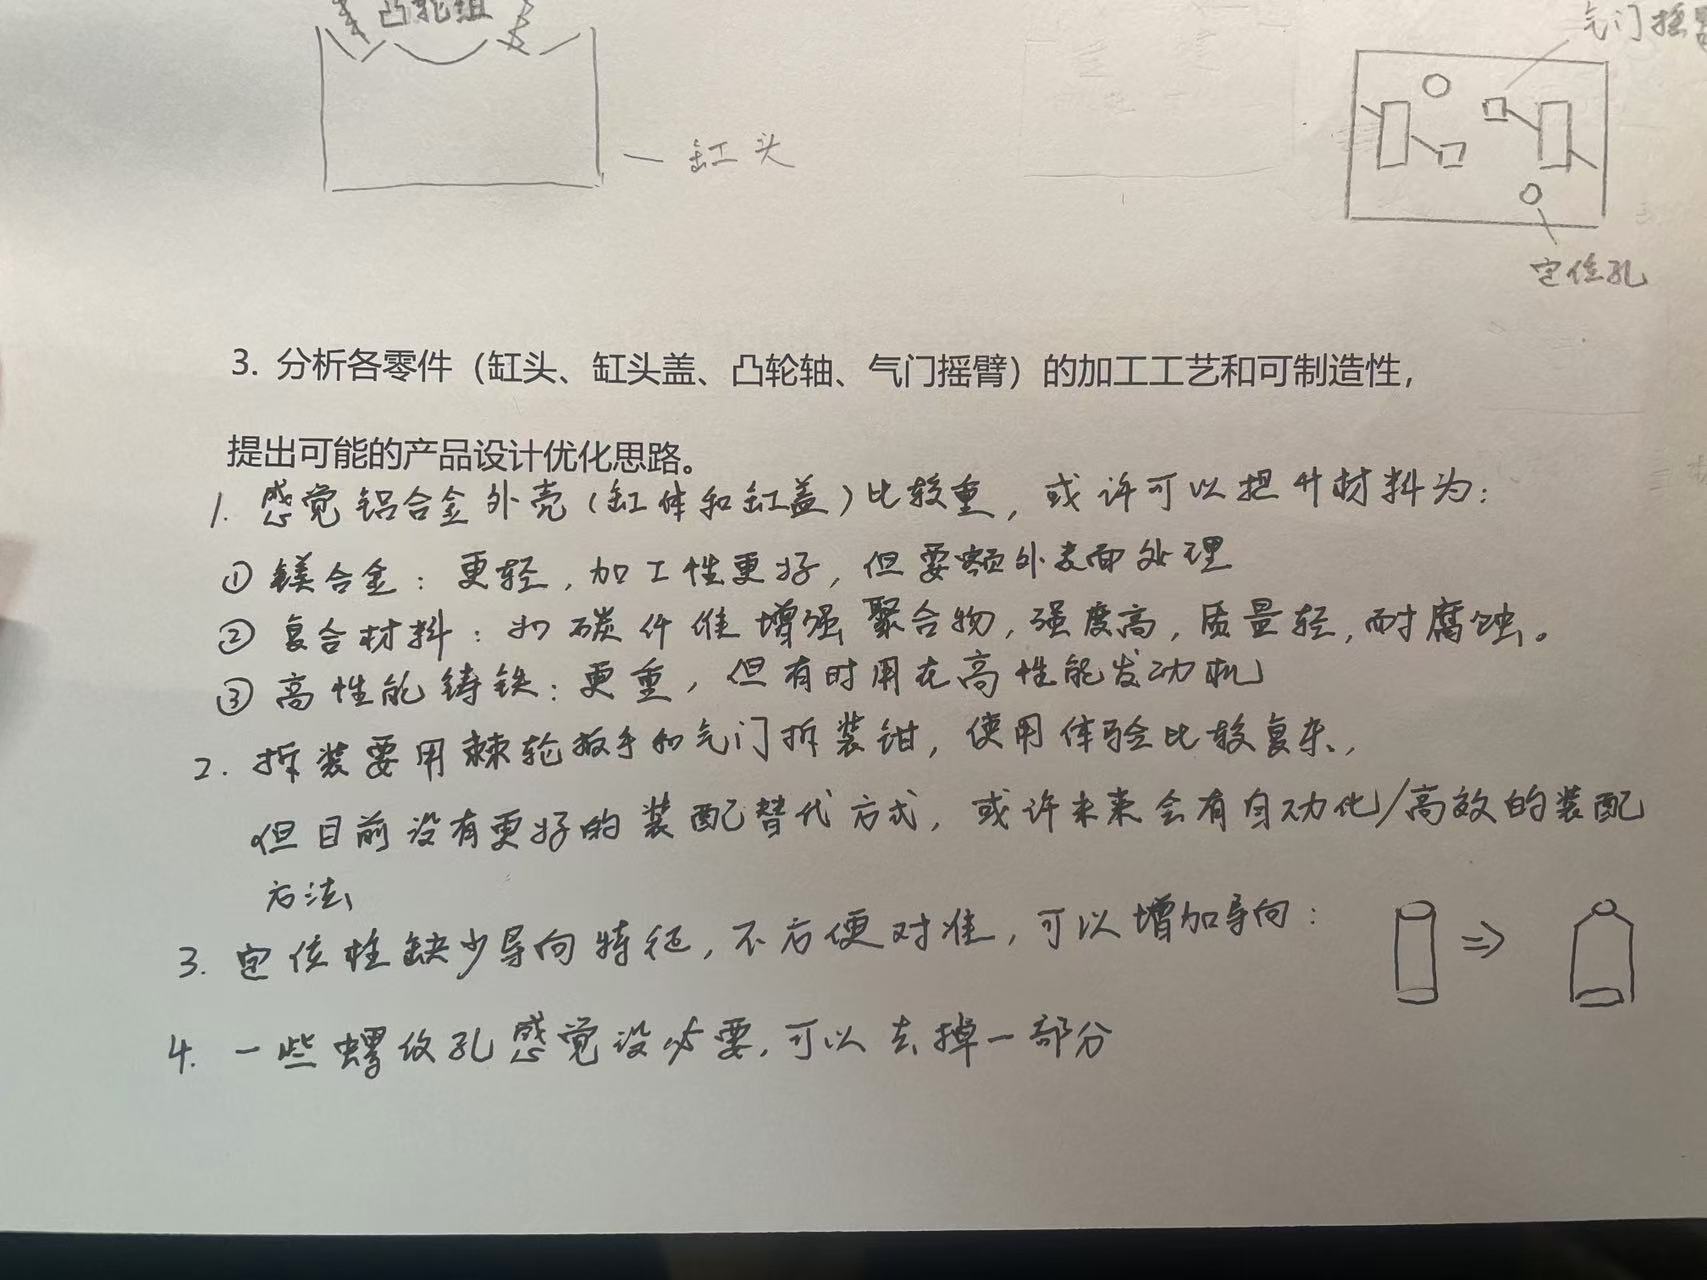 凸轮组
气门摇臂
缸头
定位孔
3. 分析各零件（缸头、缸头盖、凸轮轴、气门摇臂）的加工工艺和可制造性，
提出可能的产品设计优化思路。
1. 感觉铝合金外壳（缸体和缸盖）比较重，或许可以把外材料为：
① 镁合金：更轻，加工性更好，但要额外表面处理
② 复合材料：如碳纤维增强聚合物，强度高，质量轻，耐腐蚀。
③ 高性能铸铁：更重，但有时用在高性能发动机
2. 拆装要用棘轮扳手和气门拆装钳，使用体验比较复杂，
但目前没有更好的装配替代方式，或许未来会有自动化/高效的装配
方法
3. 定位柱缺少导向特征，不方便对准，可以增加导向：
4. 一些螺纹孔感觉没必要，可以去掉一部分